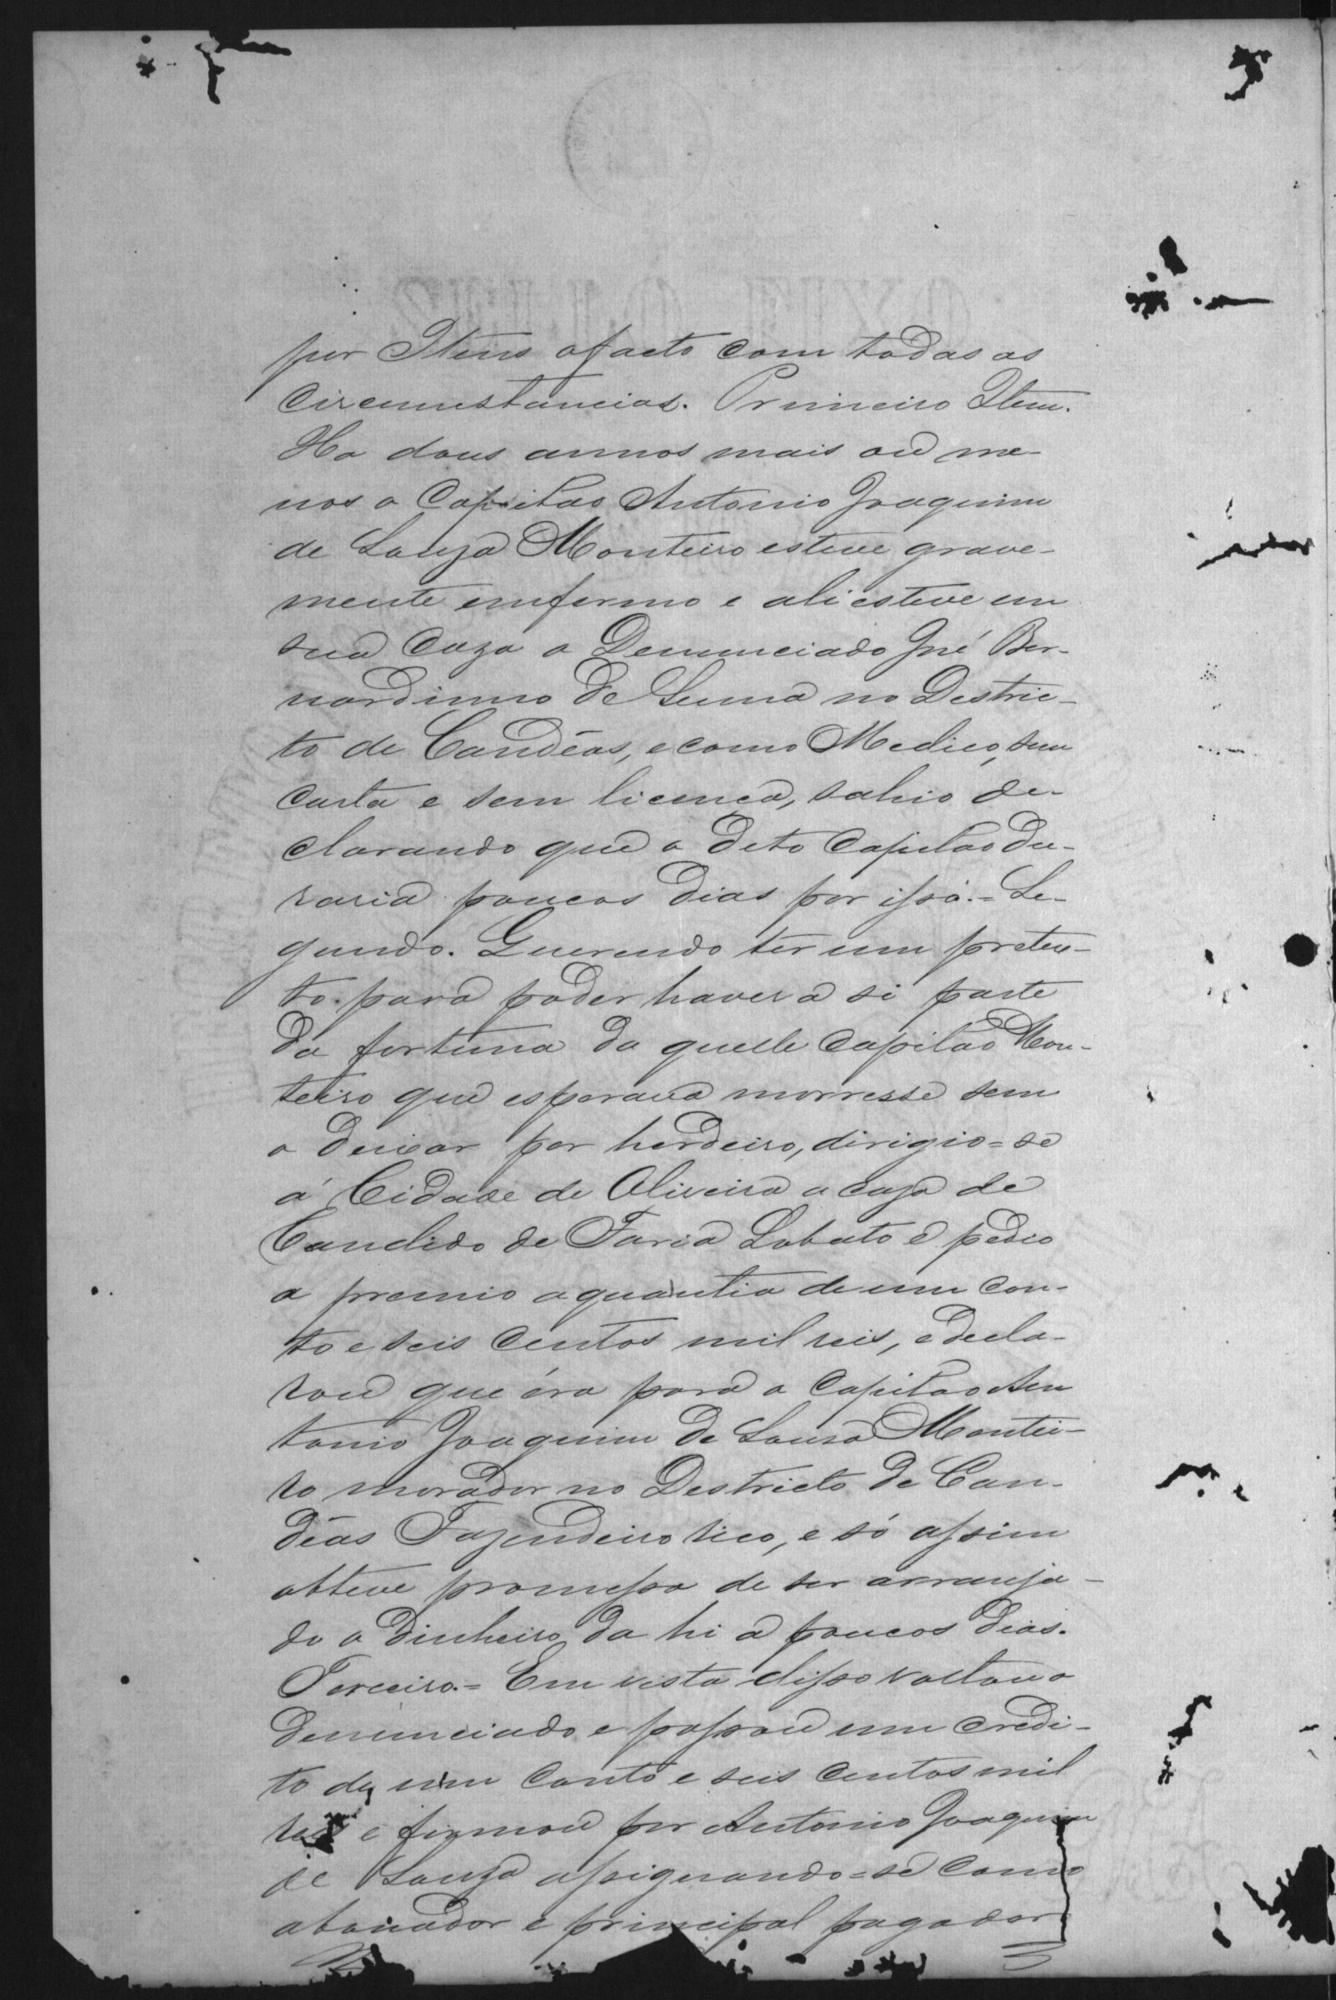 por Itens o facto com todas as
circumstancias. Primeiro Item.
Ha dous annos mais ou me-
nos o Capitão Antonio Joaquim
de Souza Monteiro esteve grave-
mente emfermo e ali esteve em
sua caza o Denunciado José Ber-
nardinno de Senna no Destric-
to de Candêas, e como Medico, sem
carta e sem licença, sahio de-
clarando que o dito Capitão du-
raria poucos dias por isso.= Se-
gundo. Querendo ter um pretex-
to para poder haver a si parte
da fortuna da quelle Capitão Mon-
teiro que esperava morresse sem
o deixar por herdeiro, dirigio=se
á Cidade de Oliveira a caza de
Candido de Faria Lobato e pedio
a premio a quantia de um con-
to e seis centos mil reis, e decla-
rou que éra para o Capitão An
tonio Joaquim de Souza Montei-
ro morador no Destricto de Can-
dêas Fazendeiro rico, e só assim
obteve promessa de ser arranja-
do o dinheiro da hi a poucos dias.
Terceiro.= Em vista disso voltou o
denunciado e passou um credi-
to de um conto e seis centos mil
reis e firmou por Antonio Joaquim
de Souza assignando=se como
abonador e principal pagador